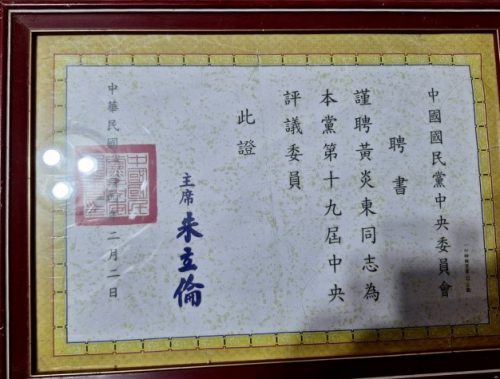 中國國民黨中央委員會
聘書
謹聘黃炎東同志為
本黨第十九屆中央
評議委員
此證
主席 朱立倫
中華民國 年二月二日